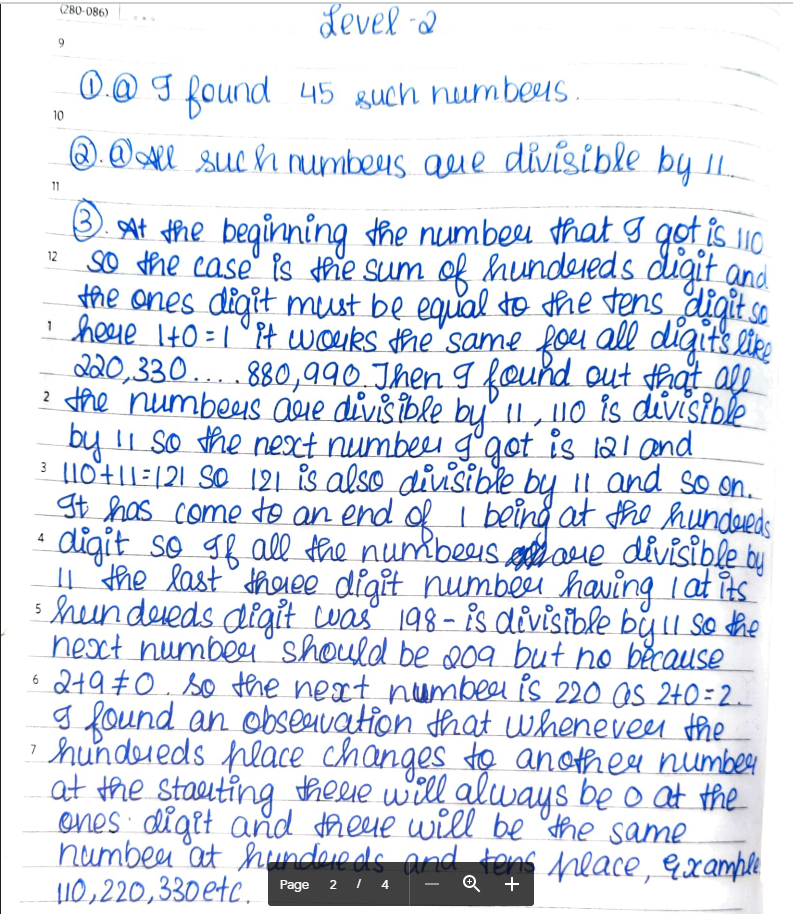 (280-086)
Level-2
9
①.ⓐ I found 45 such numbers.
10
②.ⓐ All such numbers are divisible by 11.
11
③. At the beginning the number that I got is 110
12 so the case is the sum of hundereds digit and
the ones digit must be equal to the tens digit so
1 here 1+0=1 it works the same for all digits like
220,330....880,990. Then I found out that all
2 the numbers are divisible by 11, 110 is divisible
by 11 so the next number I got is 121 and
3 110+11=121 so 121 is also divisible by 11 and so on.
It has come to an end of 1 being at the hundereds
4 digit so If all the numbers are divisible by
11 the last theree digit number having 1 at its
5 hundereds digit was 198 - is divisible by 11 so the
next number should be 209 but no because
6 2+9≠0. So the next number is 220 as 2+0=2.
I found an observation that whenever the
7 hundereds place changes to another number
at the starting there will always be 0 at the
ones digit and there will be the same
number at hundereds and tens place, Example
110,220,330 etc.
Page 2 / 4